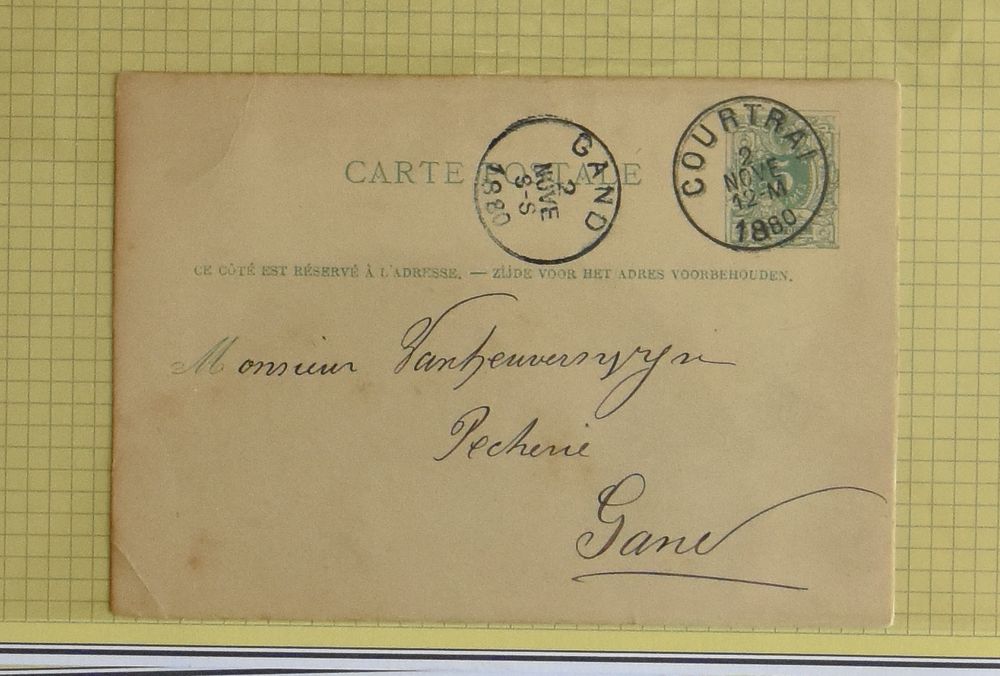 CARTE POSTALE
GAND
2
NOVE
8-S
1880
COURTRAI
2
NOVE
12-M
1880
5
CE CÔTÉ EST RÉSERVÉ À L'ADRESSE. — ZIJDE VOOR HET ADRES VOORBEHOUDEN.
Monsieur
Pecherie
Gand